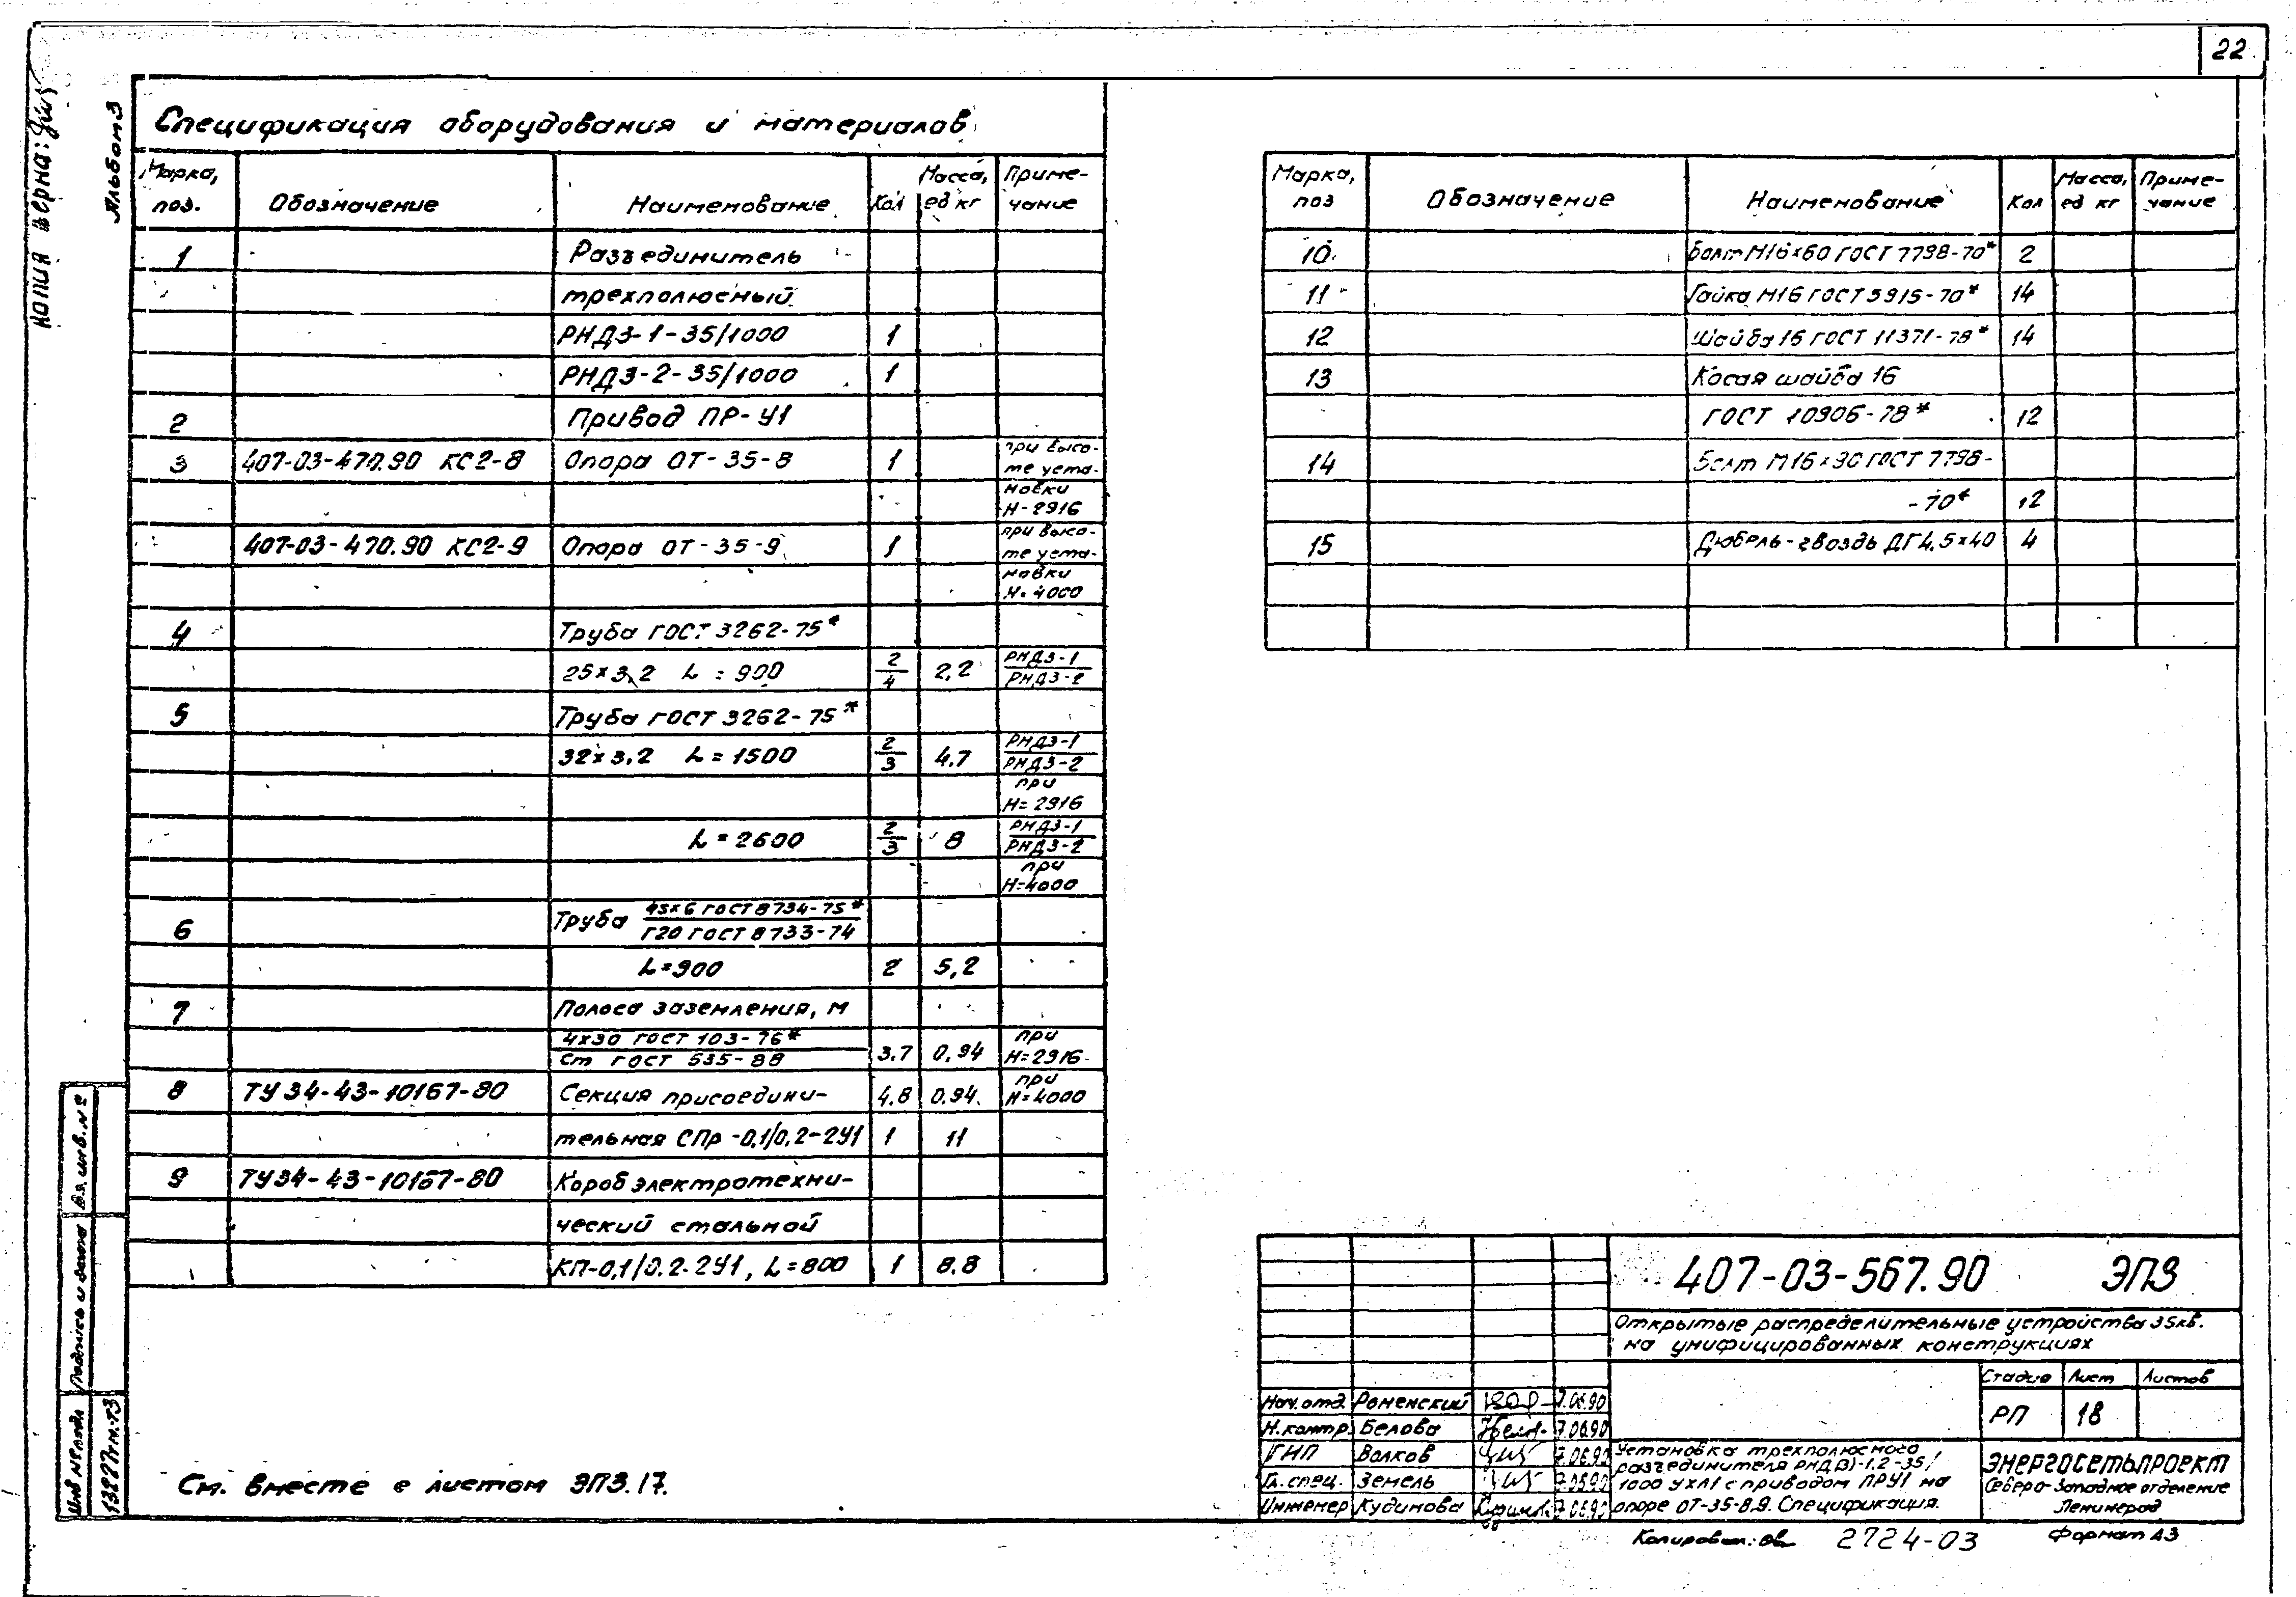 22
Копия верна:
Альбом 3
Спецификация оборудования и материалов
Марка, поз. Обозначение Наименование Кол Масса, ед кг Примечание
1 Разъединитель
трехполюсный
РНДЗ-1-35/1000 1
РНДЗ-2-35/1000 1
2 Привод ПР-У1
3 407-03-470.90 КС2-8 Опора ОТ-35-8 1 при высо-
те уста-
новки
Н-2916
407-03-470.90 КС2-9 Опора ОТ-35-9 1 при высо-
те уста-
новки
Н=4000
4 Труба ГОСТ 3262-75*
25×3,2 L=900 2/4 2,2 РНДЗ-1/РНДЗ-2
5 Труба ГОСТ 3262-75*
32×3,2 L=1500 2/3 4.7 РНДЗ-1/РНДЗ-2
при
Н=2916
L=2600 2/3 8 РНДЗ-1/РНДЗ-2
при
Н=4000
6 Труба 45×6 ГОСТ 8734-75*/Г20 ГОСТ 8733-74
L=900 2 5,2
7 Полоса заземления, м
4×30 ГОСТ 103-76*/Ст ГОСТ 535-88 3.7 0,94 при Н=2916
8 ТУ 34-43-10167-80 Секция присоедини- 4.8 0.94 при Н=4000
тельная СПр-0,1/0,2-2У1 1 11
9 ТУ34-43-10167-80 Короб электротехни-
ческий стальной
КП-0,1/0.2-2У1, L=800 1 8.8
Марка, поз Обозначение Наименование Кол Масса, ед кг Примечание
10 Болт М16×60 ГОСТ 7798-70* 2
11 Гайка М16 ГОСТ 5915-70* 14
12 Шайба 16 ГОСТ 11371-78* 14
13 Косая шайба 16
ГОСТ 10906-78* 12
14 Болт М16×90 ГОСТ 7798-
-70* 12
15 Дюбель-гвоздь ДГ4,5×40 4
См. вместе с листом ЭП3.17.
Инв № подл Подпись и дата Вз. инв. №
13227тм-т3
407-03-567.90 ЭП3
Открытые распределительные устройства 35кВ.
на унифицированных конструкциях
Стадия Лист Листов
РП 18
Нач. отд. Роменский 7.06.90
Н. контр. Белова 7.06.90
ГИП Волков 7.06.90
Гл. спец. Земель 7.06.90
Инженер Кудинова 7.06.90
Установка трехполюсного
разъединителя РНД(З)-1,2-35/
1000 УХЛ1 с приводом ПРУ1 на
опоре ОТ-35-8,9. Спецификация.
ЭНЕРГОСЕТЬПРОЕКТ
Северо-Западное отделение
Ленинград
Копировал: 2724-03 Формат А3